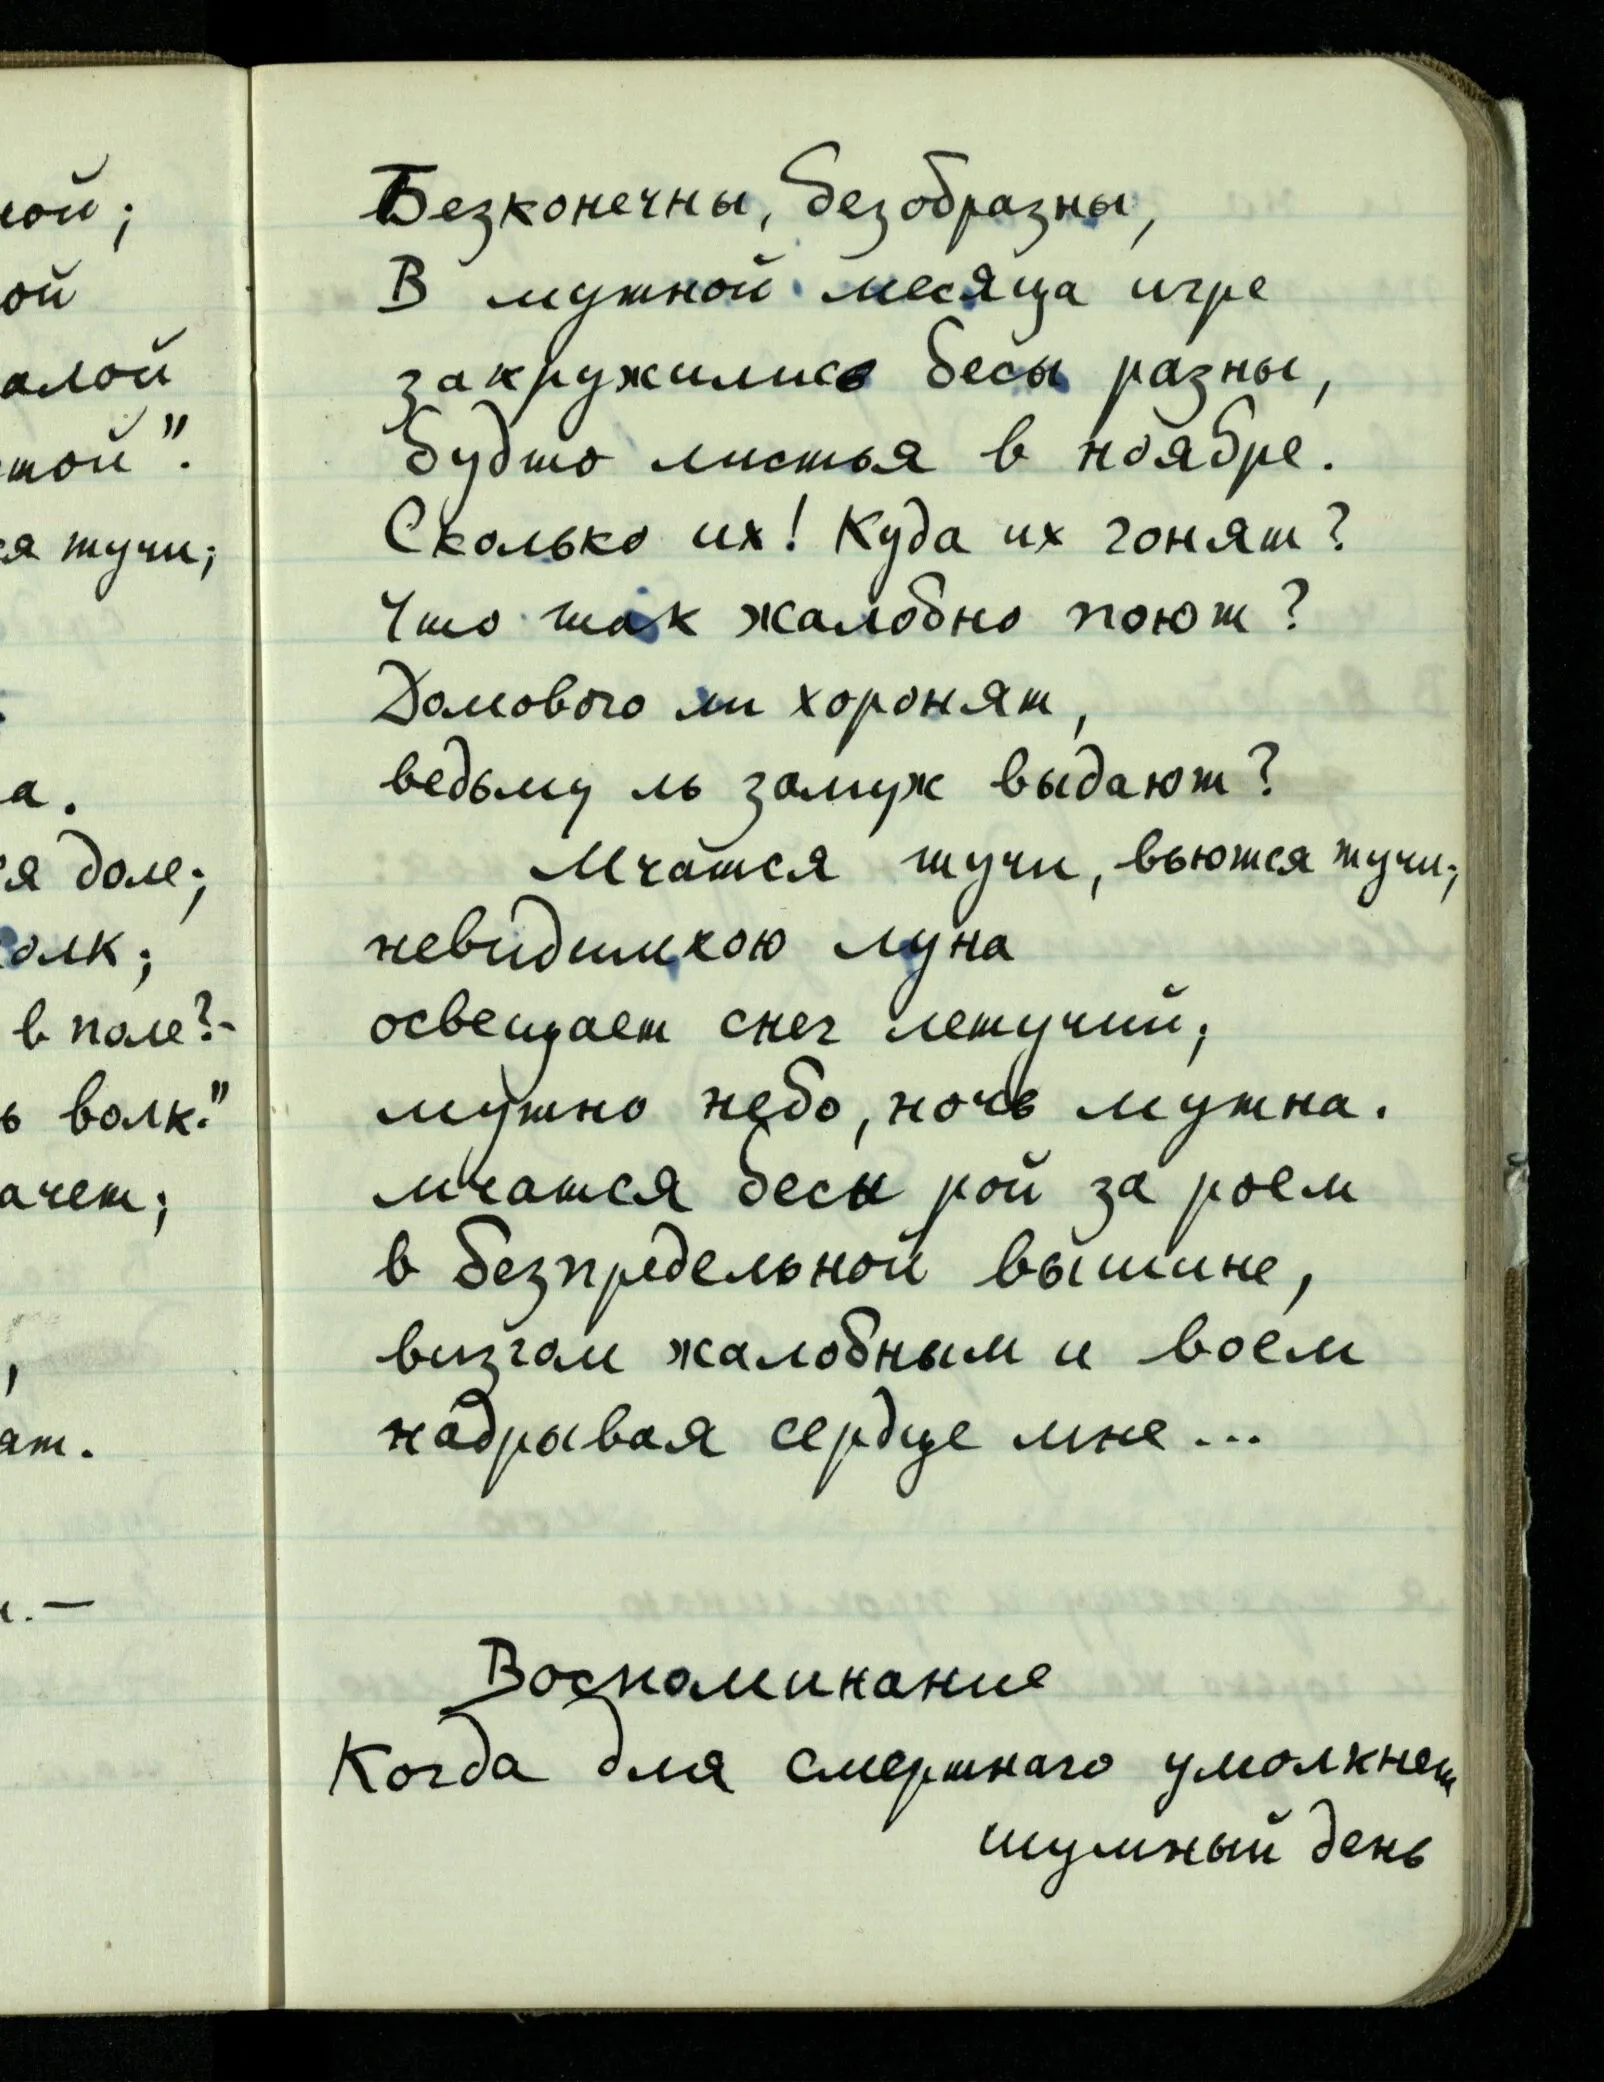 ной;
ой
алой
той".
ся тучи;
а.
ся доле;
олк;
в поле?-
ь волк."
ачет;
,
ят.
и.—
Безконечны, безобразны,
В мутной месяца игре
закружились бесы разны,
будто листья в ноябре.
Сколько их! Куда их гонят?
Что так жалобно поют?
Домового ли хоронят,
ведьму ль замуж выдают?
Мчатся тучи, вьются тучи;
невидимкою луна
освещает снег летучий;
мутно небо, ночь мутна.
мчатся бесы рой за роем
в безпредельной вышине,
визгом жалобным и воем
надрывая сердце мне...
Воспоминание
Когда для смертнаго умолкнет
шумный день